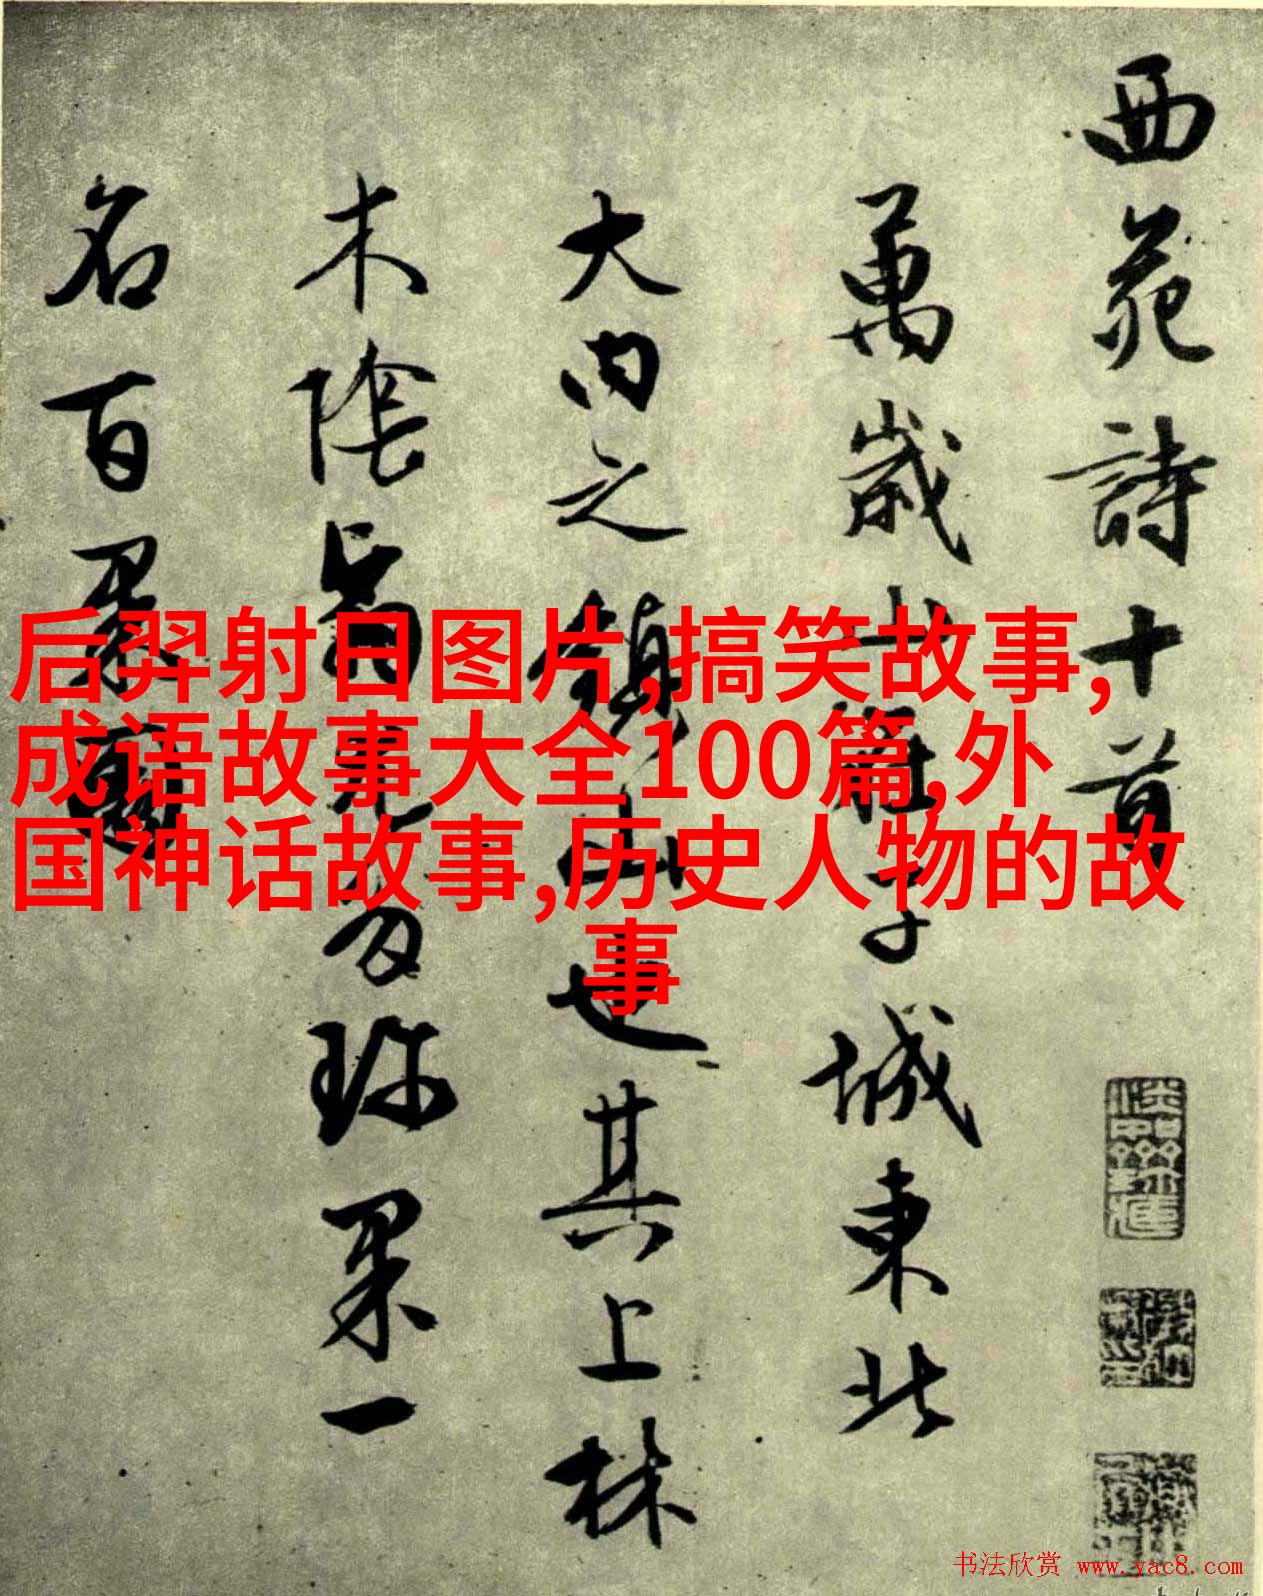 西苑詩十首
萬歲山在子城東北
大内之鎮山也其上林
木陰翳尤多珍果一
名百果園
后羿射日图片,搞笑故事,
成语故事大全100篇,外
国神话故事,历史人物的故
事
书法欣赏 www.yac8.com